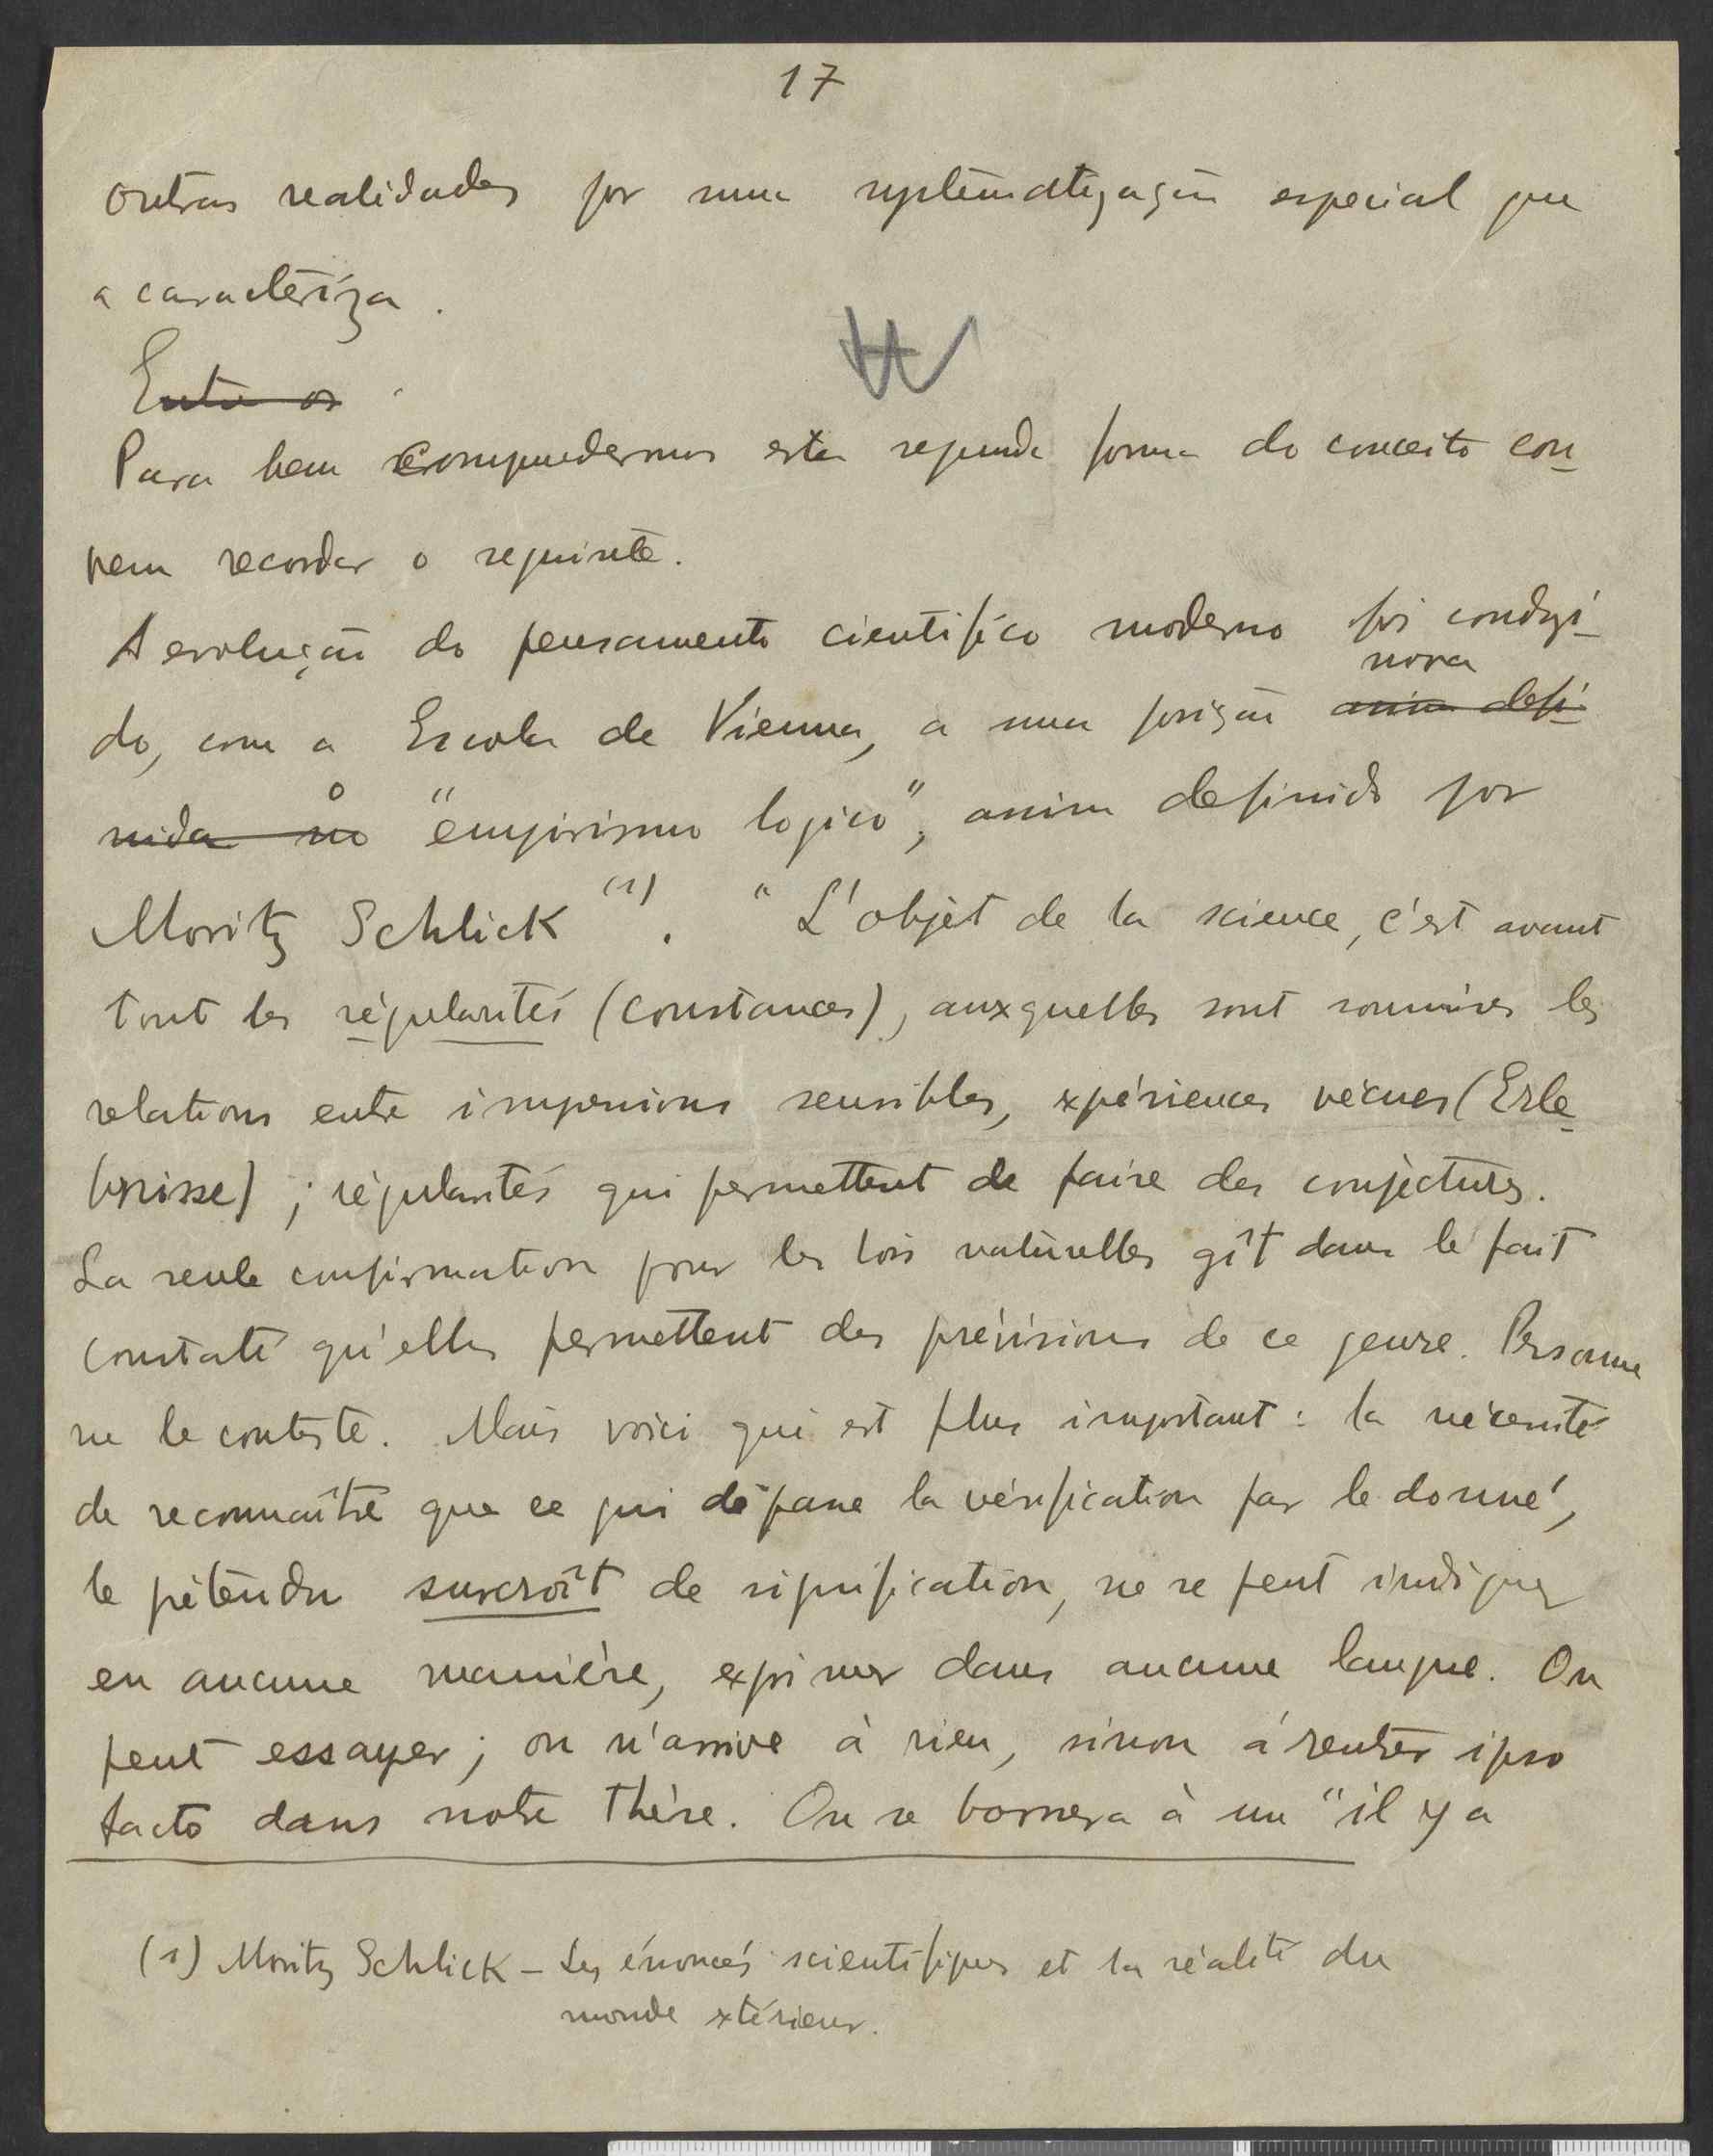 17
outras realidades por uma systematização especial que
a caracteriza.
Entre os
Para bem comprendermos esta segunda forma do conceito con-
vem recordar o seguinte.
A evolução do pensamento cientifico moderno foi condzi-
nova
do, com a Escola de Vienna, a uma posição assim defi-
o
nida no "empirismo logico", assim definido por
Moritz Schlick (1). "L'objèt de la science, c'est avant
tout les régularités (constances), auxquelles sont soumises les
relations entre impressions sensibles, expériences vécues (Erle-
bnisse); régularités qui permettent de faire des conjectures.
La seule confirmation pour les lois naturelles gît dans le fait
constaté qu'elles permettent des prévisions de ce genre. Personne
ne le conteste. Mais voici qui est plus important: la nécessité
de reconnaître que ce qui dépasse la vérification par le donné,
le prétendu surcroît de signification, ne se peut indiquer
en aucune manière, exprimer dans aucune langue. On
peut essayer; on n'arrive à rien, sinon à rentrer ipso
facto dans notre thèse. On se bornera à un "il y a
(1) Moritz Schlick - Les énoncés scientifiques et la réalité du
monde extérieur.